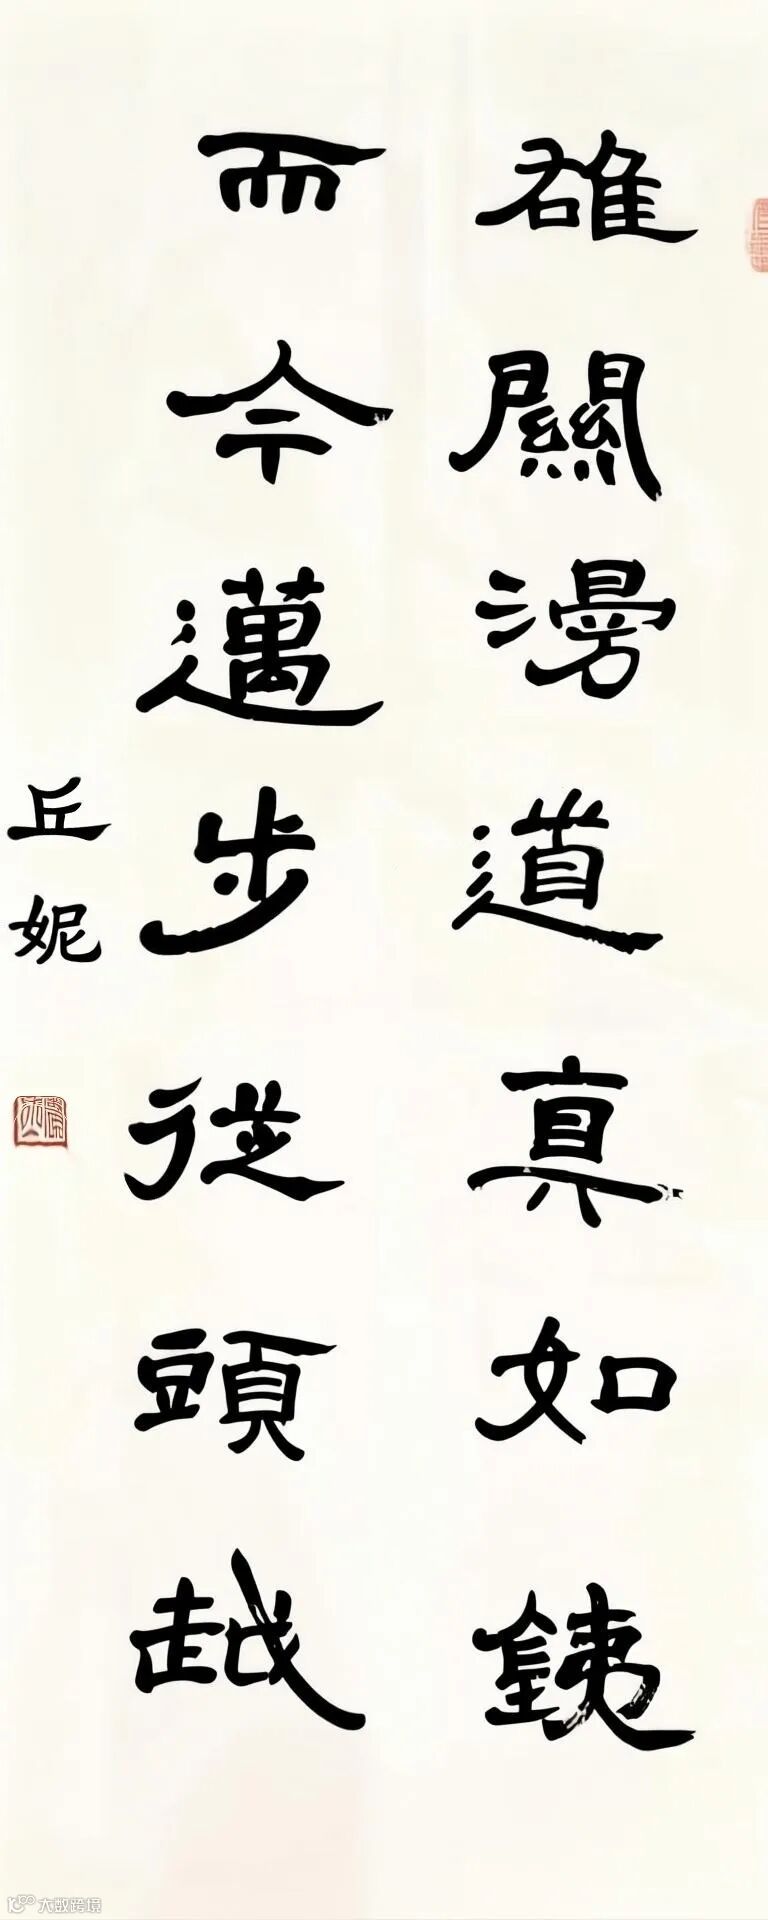 雄關漫道真如鐵
而今邁步從頭越
丘妮
大数跨境